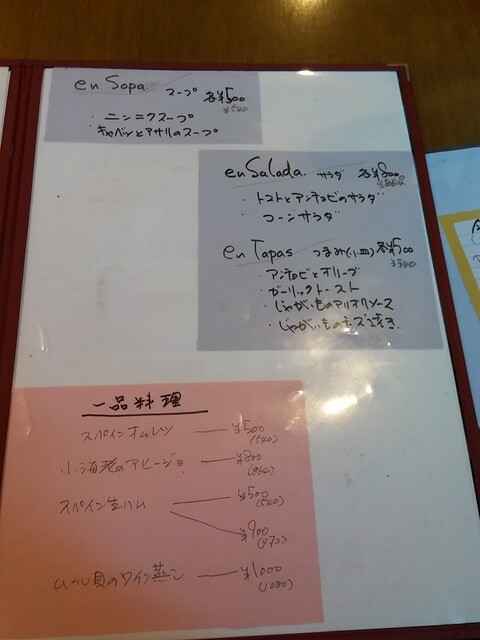 en Sopa. スープ 各¥500
¥540
・ニンニクスープ
・キャベツとアサリのスープ
en Salada. サラダ 各¥800
¥864
・トマトとアンチョビのサラダ
・コーンサラダ
en Tapas つまみ(小皿) 各¥500
¥540
・アンチョビとオリーブ
・ガーリックトースト
・じゃがいものアリオリソース
・じゃがいものチーズ焼き
一品料理
スパインオムレツ ¥500
(540)
小海老のアヒージョ ¥800
(864)
スペイン生ハム ¥500
(540)
¥900
(972)
ムール貝のワイン蒸し ¥1000
(1080)